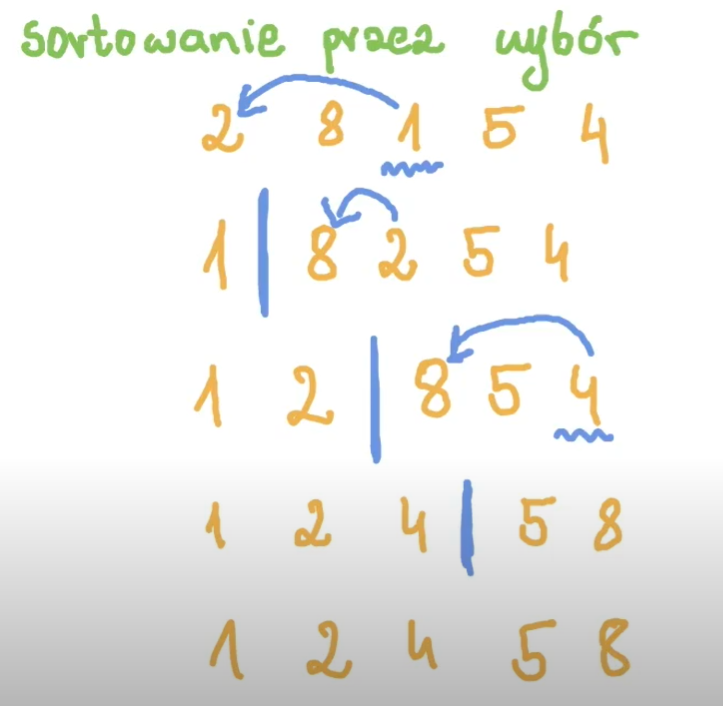 sortowanie przez wybór
2 8 1 5 4
1 | 8 2 5 4
1 2 | 8 5 4
1 2 4 | 5 8
1 2 4 5 8